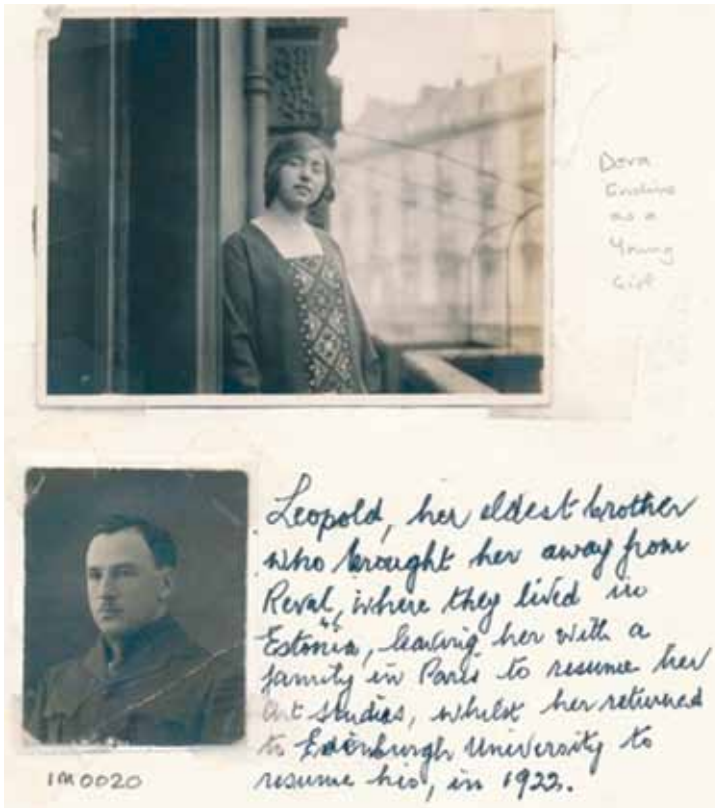 Dora
Gordine
as a
Young
Girl
Leopold, her eldest brother
who brought her away from
Reval, where they lived in
Estonia, leaving her with a
family in Paris to resume her
art studies, whilst her returned
to Edinburgh University to
resume his, in 1922.
1M0020